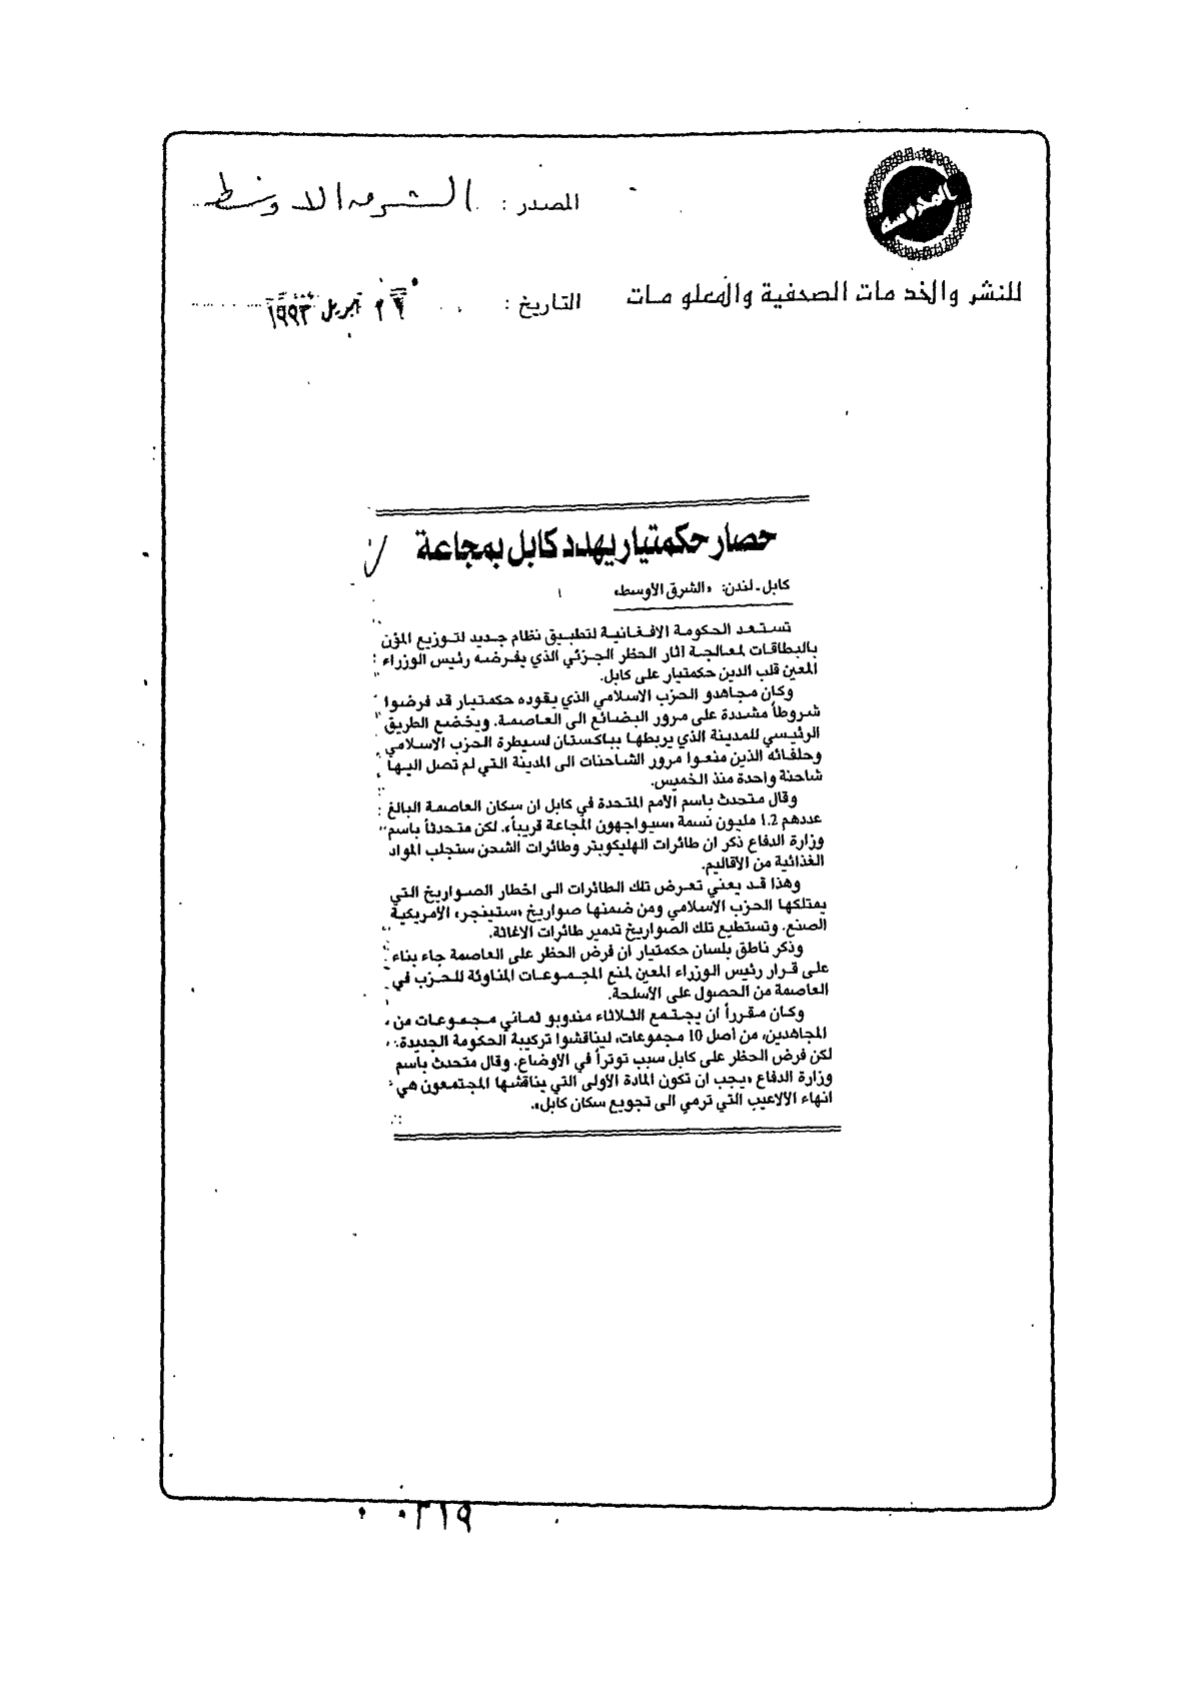 المحروسة
المصدر : الشرق الاوسط
للنشر والخدمات الصحفية والمعلومات
التاريخ : ٢٦ ابريل ١٩٩٣
حصار حكمتيار يهدد كابل بمجاعة
كابل ـ لندن: «الشرق الأوسط»
تستعد الحكومة الافغانية لتطبيق نظام جديد لتوزيع المؤن
بالبطاقات لمعالجة اثار الحظر الجزئي الذي يفرضه رئيس الوزراء
المعين قلب الدين حكمتيار على كابل.
وكان مجاهدو الحزب الاسلامي الذي يقوده حكمتيار قد فرضوا
شروطاً مشددة على مرور البضائع الى العاصمة. ويخضع الطريق
الرئيسي للمدينة الذي يربطها بباكستان لسيطرة الحزب الاسلامي
وحلفائه الذين منعوا مرور الشاحنات الى المدينة التي لم تصل اليها
شاحنة واحدة منذ الخميس.
وقال متحدث باسم الأمم المتحدة في كابل ان سكان العاصمة البالغ
عددهم 1.2 مليون نسمة «سيواجهون المجاعة قريباً». لكن متحدثاً باسم
وزارة الدفاع ذكر ان طائرات الهليكوبتر وطائرات الشحن ستجلب المواد
الغذائية من الأقاليم.
وهذا قد يعني تعرض تلك الطائرات الى اخطار الصواريخ التي
يمتلكها الحزب الاسلامي ومن ضمنها صواريخ «ستينجر» الأمريكية
الصنع. وتستطيع تلك الصواريخ تدمير طائرات الاغاثة.
وذكر ناطق بلسان حكمتيار ان فرض الحظر على العاصمة جاء بناء
على قرار رئيس الوزراء المعين لمنع المجموعات المناوئة للحزب في
العاصمة من الحصول على الأسلحة.
وكان مقرراً ان يجتمع الثلاثاء مندوبو ثماني مجموعات من
المجاهدين، من أصل 10 مجموعات، ليناقشوا تركيبة الحكومة الجديدة.
لكن فرض الحظر على كابل سبب توتراً في الأوضاع. وقال متحدث باسم
وزارة الدفاع «يجب ان تكون المادة الأولى التي يناقشها المجتمعون هي
انهاء الألاعيب التي ترمي الى تجويع سكان كابل».
٠٠٣١٩